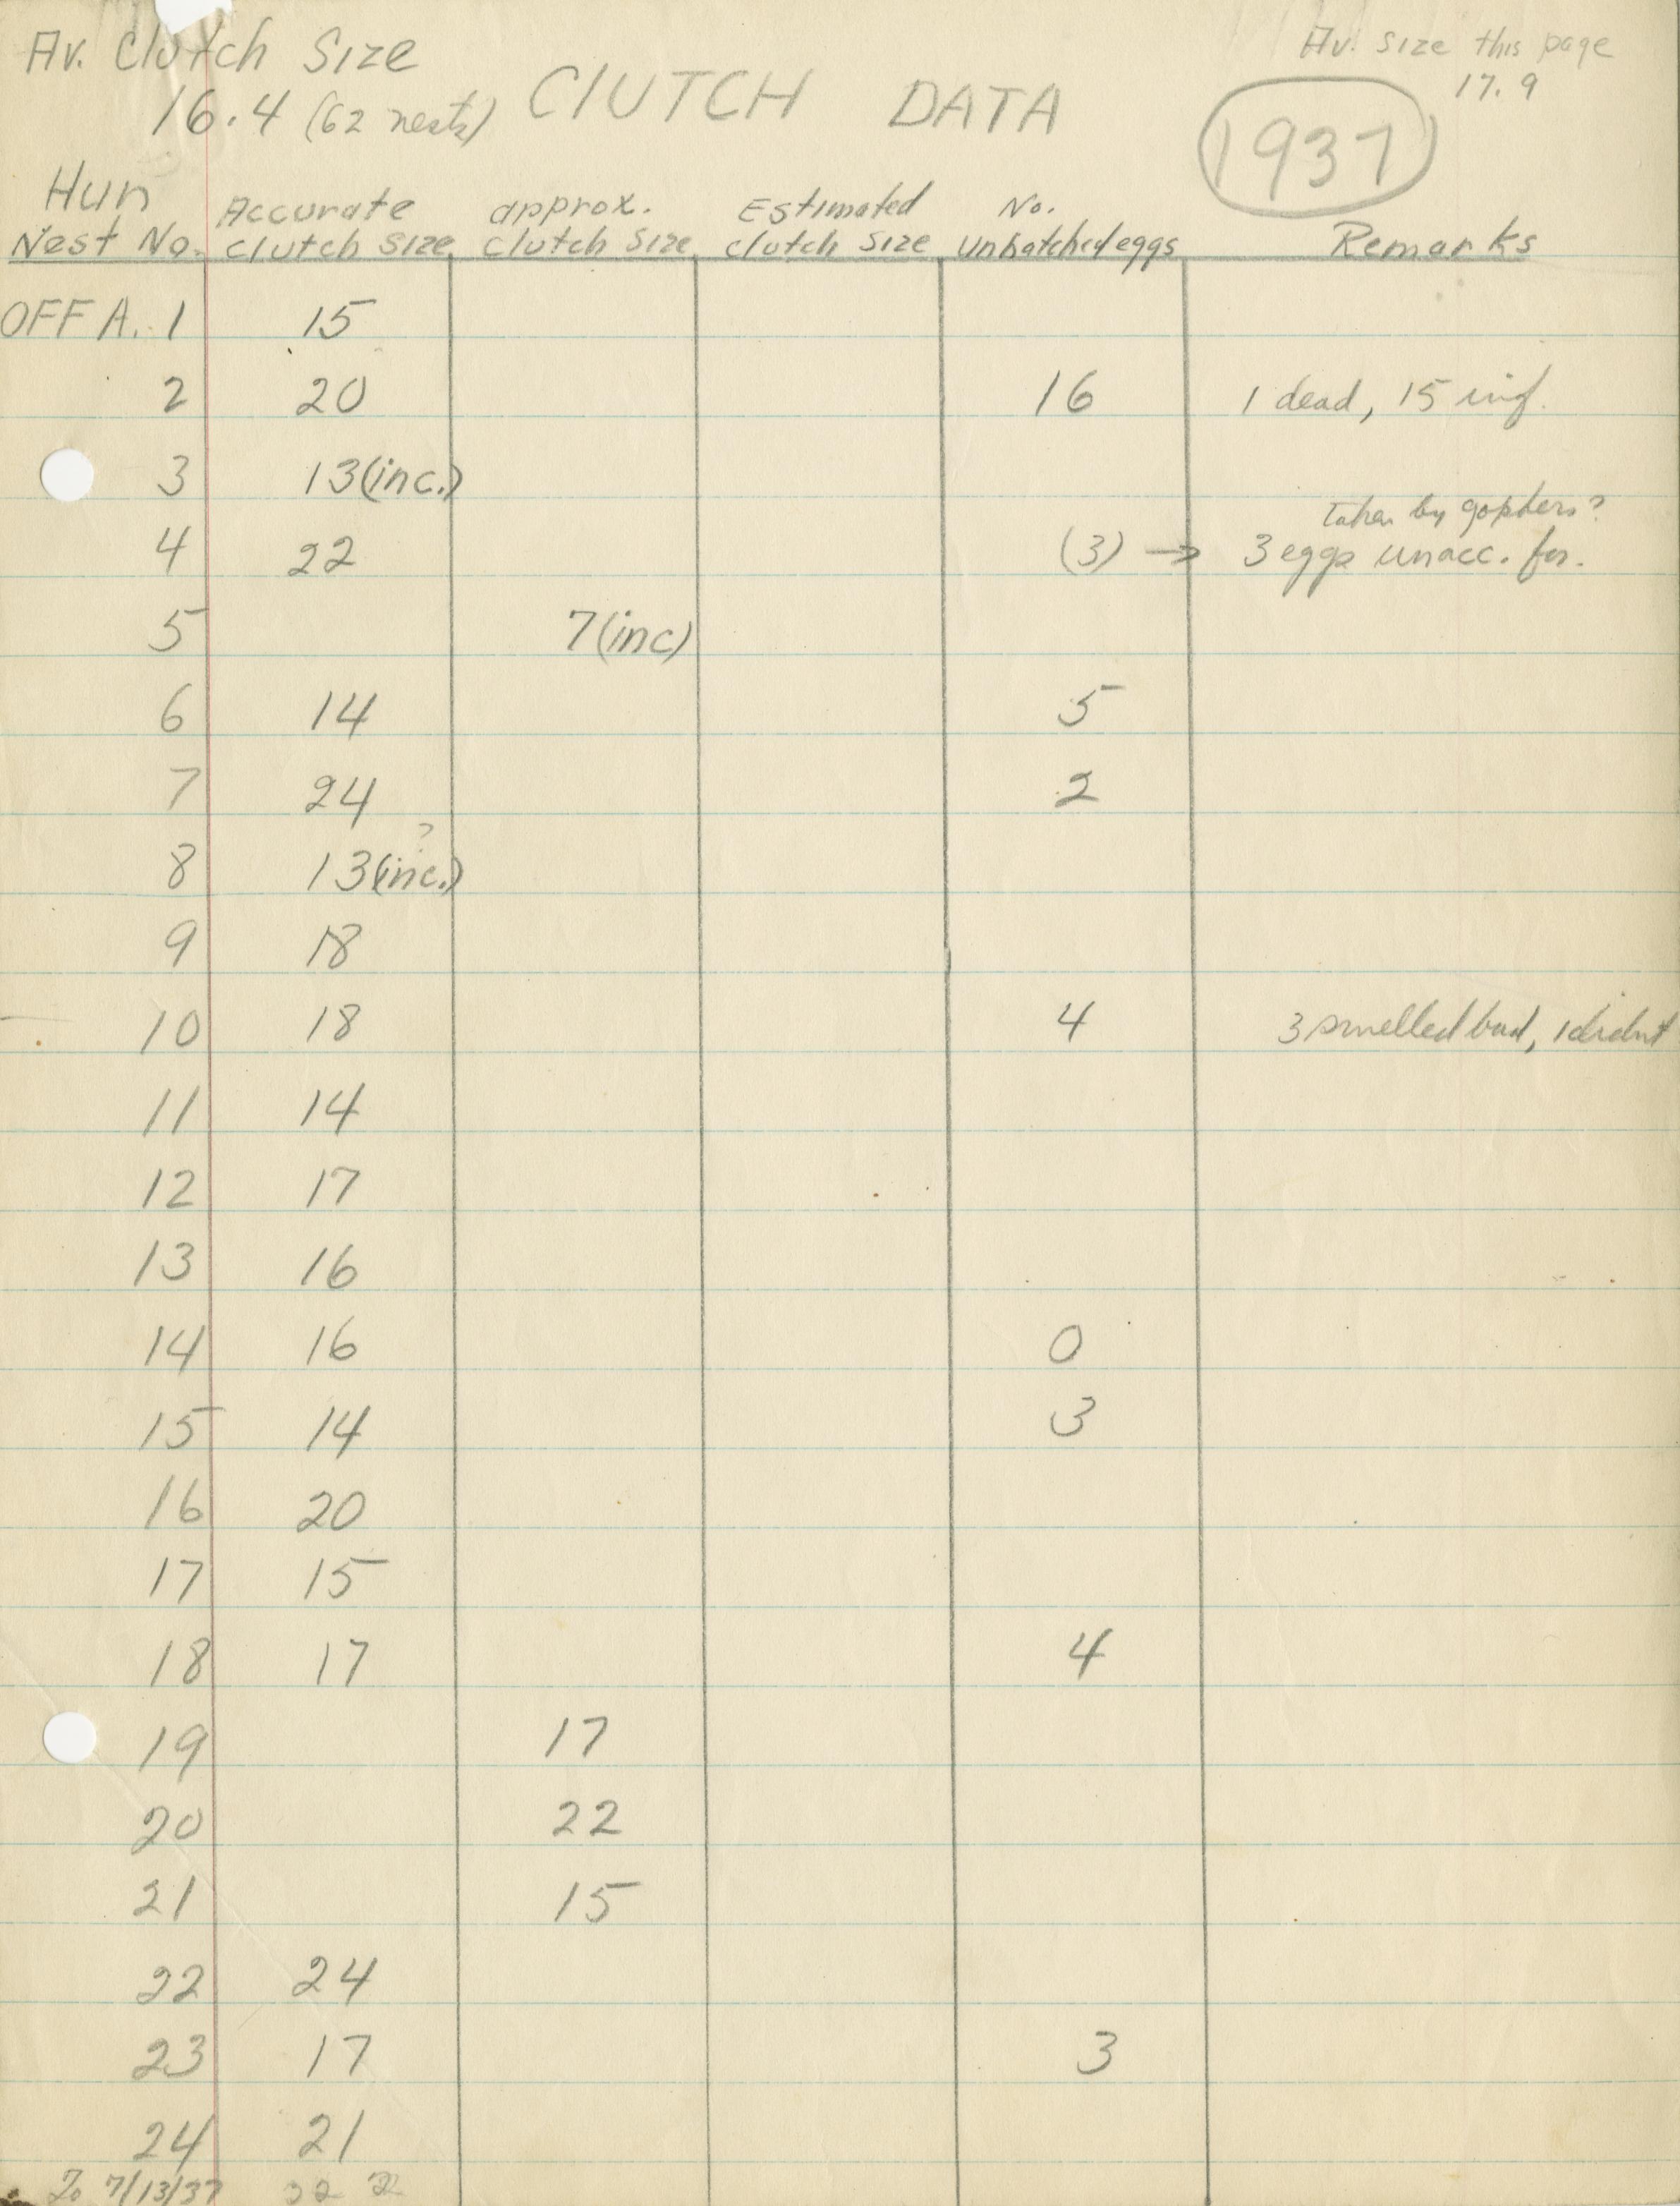 Av. Clutch Size
16.4 (62 nests)
CLUTCH DATA
Av. size this page
17.9
1937
Hun
Nest No. Accurate clutch size approx. clutch size Estimated clutch size No. unhatched eggs Remarks
OFF A. 1 15
2 20 16 1 dead, 15 inf.
3 13 (inc.)
taken by gophers?
4 22 (3) → 3 eggs unacc. for.
5 7 (inc)
6 14 5
7 24 2
?
8 13 (inc.)
9 18
10 18 4 3 smelled bad, 1 didnt
11 14
12 17
13 16
14 16 0
15 14 3
16 20
17 15
18 17 4
19 17
20 22
21 15
22 24
23 17 3
24 21
To 7/13/37 22